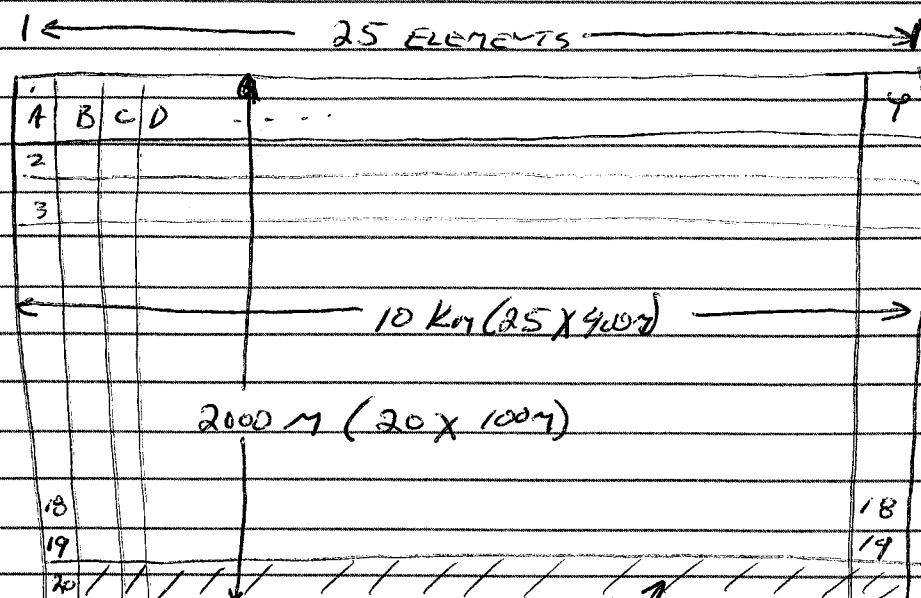 1 25 ELEMENTS
A B C D - - - - Y
2
3
10 Km (25 X 400m)
2000 M (20 X 100m)
18 18
19 19
20